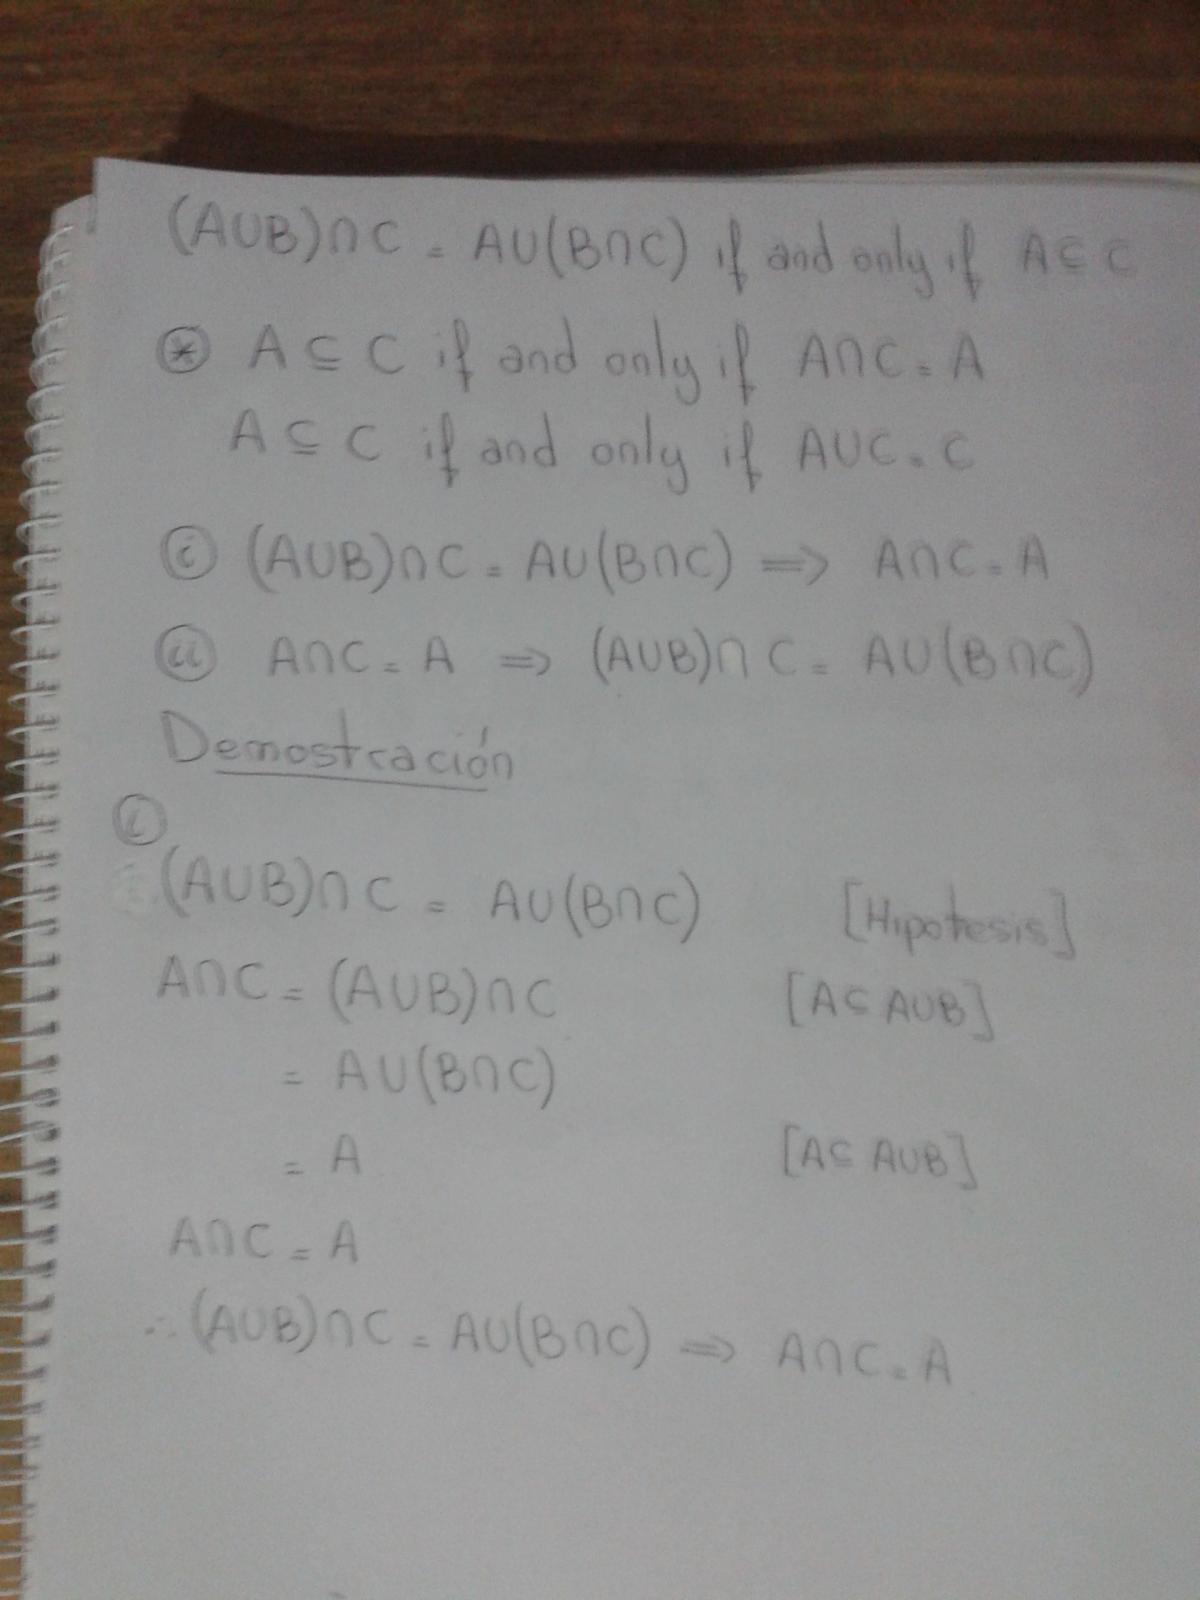 (A∪B)∩C = A∪(B∩C) if and only if A⊆C
⊛ A⊆C if and only if A∩C = A
A⊆C if and only if A∪C = C
ⓘ (A∪B)∩C = A∪(B∩C) ⟹ A∩C = A
ⓘⓘ A∩C = A ⟹ (A∪B)∩C = A∪(B∩C)
Demostración
ⓘ
(A∪B)∩C = A∪(B∩C) [Hipotesis]
A∩C = (A∪B)∩C [A⊆A∪B]
= A∪(B∩C)
= A [A⊆A∪B]
A∩C = A
∴ (A∪B)∩C = A∪(B∩C) ⟹ A∩C = A